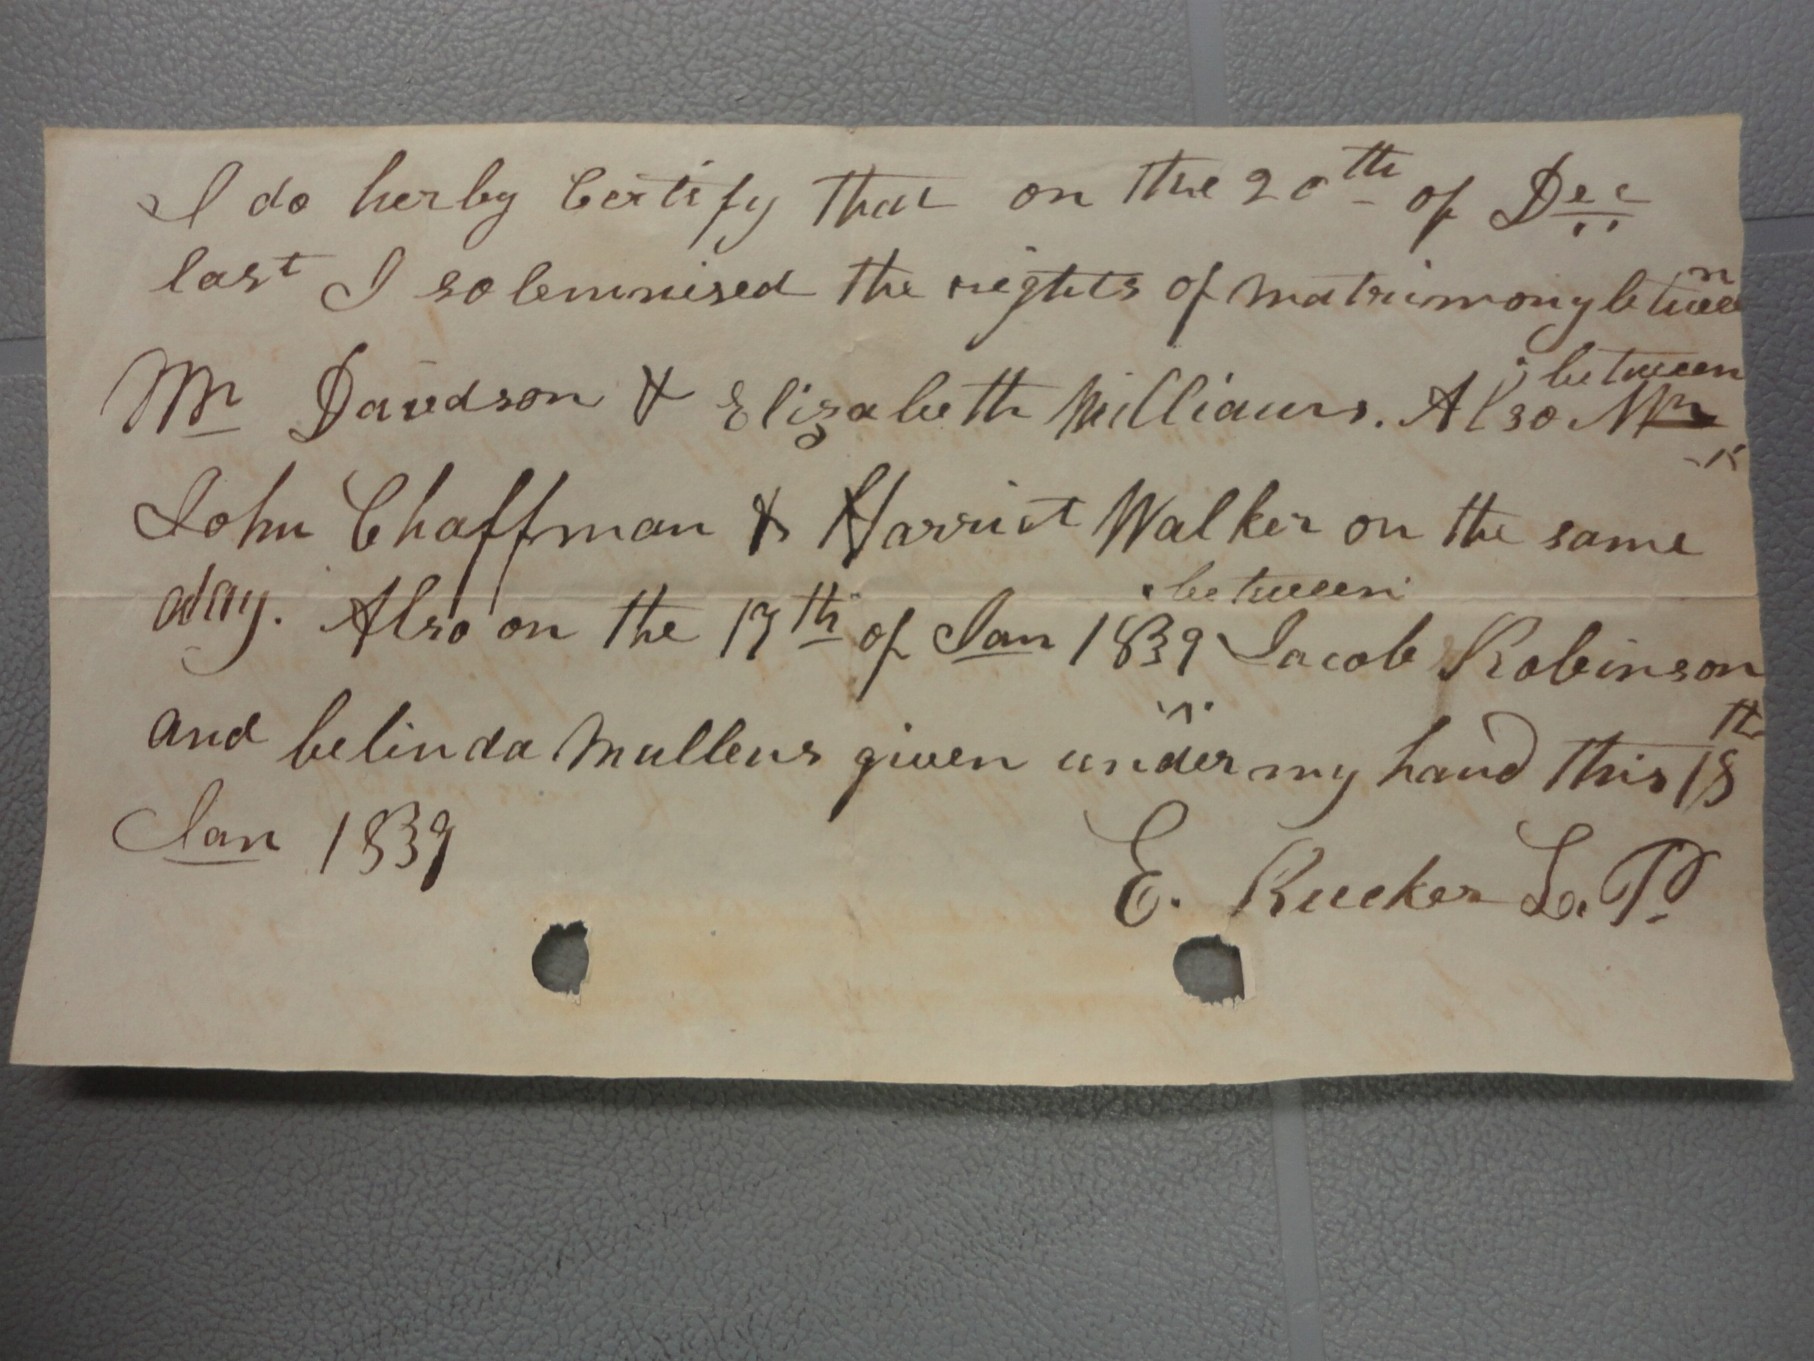 I do herby Certify that on the 20th of Dec
last I solemnised the rights of matrimony between
Mr Davidson & Elizabeth Williams. Also between Mr
John Chaffman & Harriet Walker on the same
day. Also on the 17th of Jan 1839 between Jacob Robinson
and belinda Mullens given under my hand this 18th
Jan 1839
E. Rucker L. P.